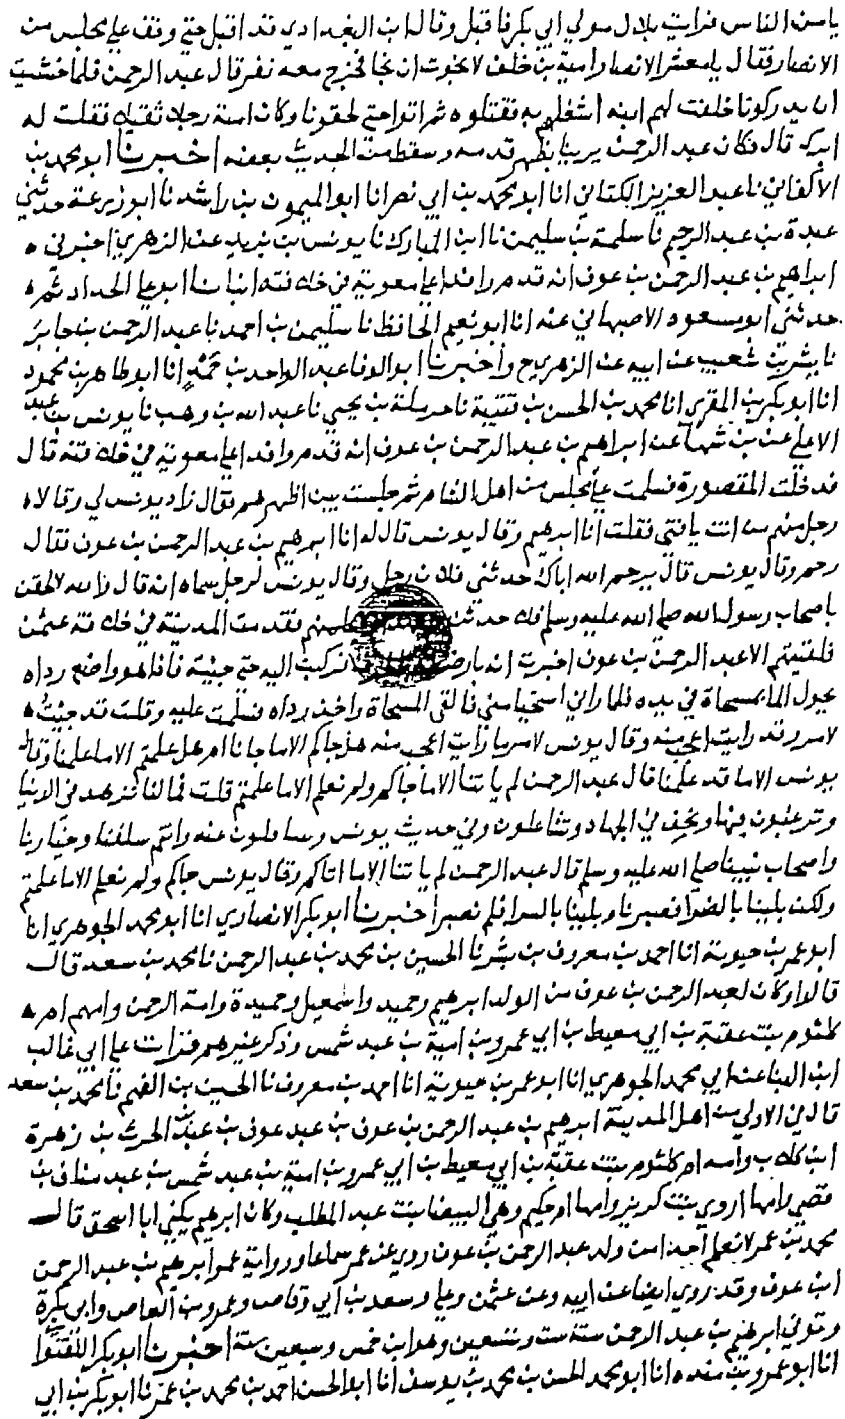 يا من الناس فرايت بلال مولى ابي بكرنا قبل وقال ابن البغدادي قد اقبل حتى وقف على مجلس من
الانصار فقال يا معشر الانصار امية بن خلف لا نجوت ان نجا فخرج معه نفر قال عبد الرحمن فلما خشيت
ان يدركونا خلفت لهم ابنه اشغلهم به فقتلوه ثم اتوا حتى لحقونا وكان امية رجلا ثقيلا فقلت له
ابرك قال فكان عبد الرحمن يرينا بظهر قدمه وسقط من الحديث بعضه اخبرنا ابو محمد بن
الاكفاني نا عبد العزيز الكتاني انا ابو محمد بن ابي نصر انا ابو الميمون بن راشد نا ابو زرعة حدثني
عبدة بن عبد الرحيم نا سلمة بن سليمن نا ابن المبارك نا يونس بن يزيد عن الزهري اخبرني
ابراهيم بن عبد الرحمن بن عوف انه قدم وافدا على معوية في خلافته انبانا ابو علي الحداد ثم
حدثني ابو مسعود الاصبهاني عنه انا ابو نعيم الحافظ نا سليمن بن احمد نا عبد الرحمن بن جابر
نا بشر بن شعيب عن ابيه عن الزهري ح واخبرنا ابو الوفا عبد الواحد بن حمد انا ابو طاهر بن محمود
انا ابو بكر بن المقري انا محمد بن الحسن بن قتيبة نا حرملة بن يحيى نا عبد الله بن وهب نا يونس بن عبد
الاعلى عن بن شهاب عن ابراهيم بن عبد الرحمن بن عوف انه قدم وافدا على معوية في خلافته قال
فدخلت المقصورة فسلمت على مجلس من اهل الشام ثم جلست بين اظهرهم فقال زاد يونس لي وقالا
رجل منهم من انت يا فتى فقلت انا ابرهيم وقال يونس قال له انا ابرهيم بن عبد الرحمن بن عوف فقال
رحم وقال يونس قال يرحم الله اباك حدثني فلان رجل وقال يونس لرجل سماه انه قال والله لالحقن
باصحاب رسول الله صلى الله عليه وسلم فلا حدثن فقدمت المدينة في خلافة عثمن
فلقيتهم الا عبد الرحمن بن عوف اخبرت انه بارض فركبت اليه حتى جيته فاذا هو واضع رداه
يحول الما بمسحاة في يده فلما راني استحيا مني فالقى المسحاة واخذ رداه فسلمت عليه وقلت قد جيتك
لامر وقد رايت اعجب منه وقال يونس لامر ما رايت اعجب منه هل جاكم الا ما جانا ام هل علمتم الا ما علمنا وقال
يونس الا ما قد علمنا قال عبد الرحمن لم ياتنا الا ما جاكم ولم نعلم الا ما علمتم قلت فما لنا نزهد في الدنيا
وترغبون فيها ونخف في الجهاد وتثاقلون وفي حديث يونس عنه وانتم سلفنا وخيارنا
واصحاب نبينا صلى الله عليه وسلم قال عبد الرحمن لم ياتنا الا ما اتاكم وقال يونس جاكم ولم نعلم الا ما علمتم
ولكن بلينا بالضرا فصبرنا وبلينا بالسرا فلم نصبر اخبرنا ابو بكر الانصاري انا ابو محمد الجوهري انا
ابو عمر بن حيوية انا احمد بن معروف بن بشر نا الحسين بن محمد بن عبد الرحمن نا محمد بن سعد قال
قالوا وكان لعبد الرحمن بن عوف من الولد ابرهيم وحميد واسمعيل وحميدة وامة الرحمن وامهم ام
كلثوم بنت عقبة بن ابي معيط بن ابي عمرو بن امية بن عبد شمس وذكر غيرهم قرات على ابي غالب
ابن البنا عن ابي محمد الجوهري انا ابو عمر بن حيوية انا احمد بن معروف نا الحسين بن الفهم نا محمد بن سعد
قال في الاولى من اهل المدينة ابرهيم بن عبد الرحمن بن عوف بن عبد عوف بن عبد الحرث بن زهرة
ابن كلاب وامه ام كلثوم بنت عقبة بن ابي معيط بن ابي عمرو بن امية بن عبد شمس بن عبد مناف بن
قصي وامها اروى بنت كريز وامها ام حكيم وهي البيضا بنت عبد المطلب وكان ابرهيم يكنى ابا اسحق قال
محمد بن عمر لا نعلم احدا من ولد عبد الرحمن بن عوف روى عن عمر سماعا ورواية عمر ابرهيم بن عبد الرحمن
ابن عوف وقد روى ايضا عن ابيه وعن عثمن وعلي وسعد بن ابي وقاص وعمرو بن العاص وابي بكرة
وتوفي ابرهيم بن عبد الرحمن سنة ست وتسعين وهو ابن خمس وسبعين سنة اخبرنا ابو بكر اللفتواني
انا ابو عمرو بن منده انا ابو محمد الحسن بن محمد بن يوسف انا ابو الحسن احمد بن محمد بن عمر نا ابو بكر بن ابي